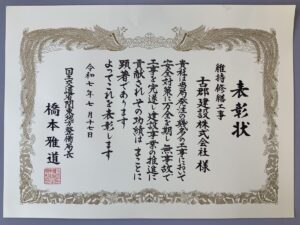 表彰状
維持修繕工事
古郡建設株式会社 様
貴社は当局発注の幾多の工事において
安全対策に万全を期し無事故で
工事を完遂し建設事業の推進に
貢献されその功績はまことに
顕著であります
よってこれを表彰します
令和七年七月十七日
国土交通省関東地方整備局長
橋本雅道